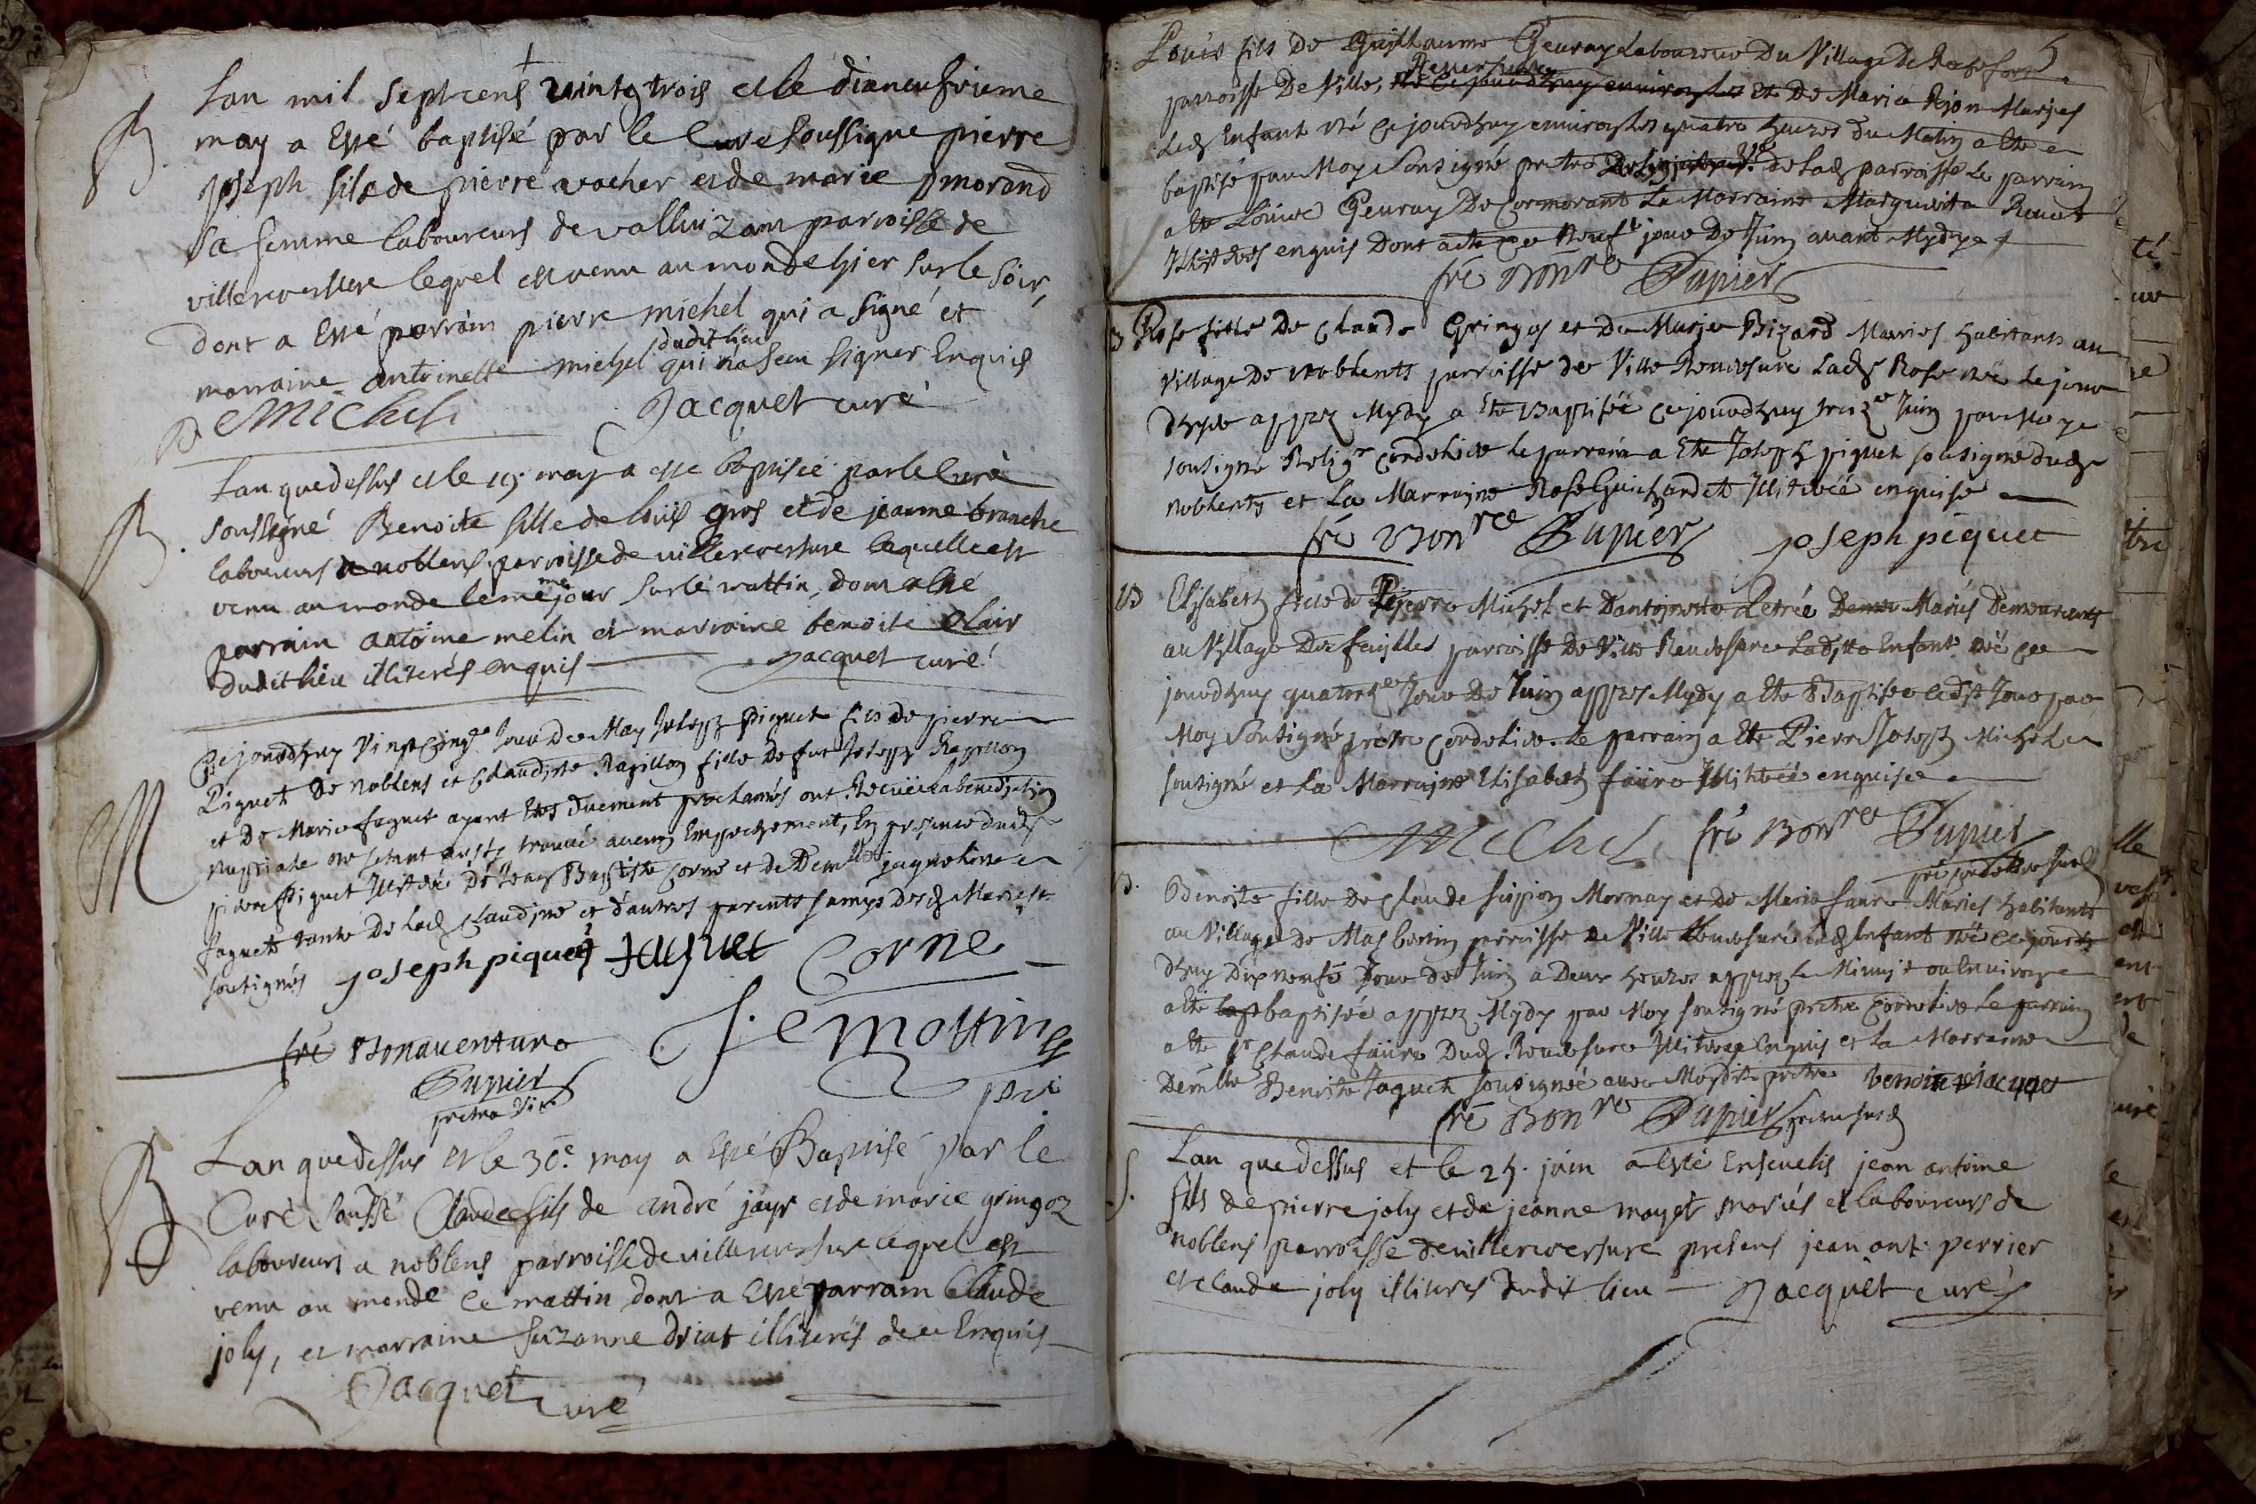 B.
Lan mil Sept cens vintg trois et le dianeufvieme
may a esté baptisé par le Curé Soussigné pierre
joseph fils de pierre vacher et de marie morand
sa femme laboureurs de parroisse de
villereversure lequel est venu au monde hier sur le soir,
dont a esté parrain pierre michel qui a signé et
marraine antoinette michel dudit lieu qui na sceu signer Enquis
Michel Jacquet curé
B.
Lan que dessus et le may a esté baptisée par le Curé
soussigné Benoite fille de louis gros et de jeanne branche
laboureurs a noblens parroisse de villereversure laquelle est
venu au monde le meme jour sur le mattin, dont a esté
parrain antoine melin et marraine benoite clair
dudit lieu illiterés enquis Jacquet curé
M
Cejourdhuy Vingt cinqe. Jour De May Joseph Piquet fils de pierre
Piquet De Noblens et Claudine Rapillon fille De fut Joseph Rapillon
et De Marie faguet ayant Etés duement proclamés ont Receü la benediction
nuptiale ne setant trouvé aucun Empechement, En presence dudt
pierre Piquet Illiteré De Jean Baptiste Corne et de Demlle jaqueline
faguet tante De ladt Claudine et d'autres parents & amys Desdt Mariés
soutignés joseph piquet faguet Corne
fre Bonaventure
Papier
pretre Vic
B
Lan que dessus et le 30e. may a esté Baptisé par le
Curé soussé Claude fils de andré jayr et de marie gringoz
laboureurs a noblens parroisse de villereversure lequel est
venu au monde ce mattin dont a esté parrain Claude
joly, et marraine suzanne driat illiterés de ce Enquis
Jacquet curé
Louis fils De Guillaume Geuray Laboureur Du Village De Rochefort
parroisse De Ville Reversure Et De Marie Rejon Mariés
Ledt Enfant Né Ce jourdhuy environ les quatre heures du Matin a Ete
baptisé par Moy Soutigné pretre de Ladt parroisse Le parrain
a Ete Louise Geuray De Cormorant La Marraine Marguerite
Illiterés enquis Dont acte ce Neufe jour De Juin avant Mydy
fre Bonre Papier
B
Rose fille De Claude Gringos et De Marie Bizard Mariés habitants au
Village De Noblents parroisse de Ville Reversure Ladt Rose née Le jour
Dhyer apprez Mydy a Ete Baptisée Ce jourdhuy treize Juin par Moy
soutigné Religx Cordelier Le parrain a Ete Joseph piquet soutigné dudt
Noblents et La Marraine Rose Guichardet Illiterée enquise
fre Bonre Papier joseph piquet
B
Elisabeth fille de Pierre Michel et Dantoinette Mariés Demeurants
au Village De parroisse De Ville Reversure Laditte Enfant née Ce
jourdhuy quatorze Jour De Juin apprez Mydy a Ete Baptisée Ledt Jour par
Moy Soutigné pretre Cordelier. Le parrain a Ete Pierre Joseph Michel
soutigné et La Marraine Elisabeth faüre Illiterée enquise
Michel fre Bonre Papier
B.
Benoite fille De Claude Mornay et De Marie faure Mariés habitants
au Village De Mas bertin parroisse De Ville Reversure Ledt Enfant née Ce jourd
dhuy Dixneufe Jour De Juin a Deux heures apprez Le Minuit ou Environ
a Ete baptisée apprez Mydy par Moy soutigné pretre Cordelier Le parrain
a Ete Sr Claude faüre Dudt Reversure Illiteré Enquis et La Marraine
Demlle Benoite Jaquet soutignée avec Moydit pretre benoite jaquet
fre Bonre Papier
S.
Lan que dessus et le 25. juin a esté Ensevelis jean antoine
fils de pierre joly et de jeanne mayet mariés et laboureurs de
noblens parroisse de villereversure presens jean ant: perrier
et claude joly illiterés dudit lieu Jacquet curé